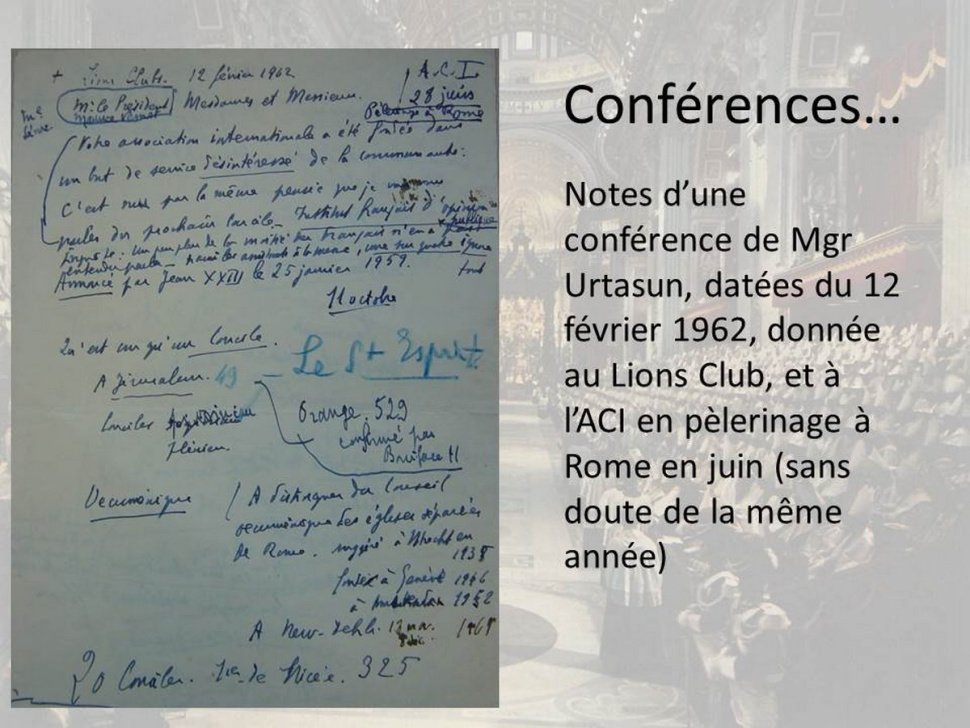 + Lions Club. 12 février 1962
A.C.I
28 juin
Pèlerinage à Rome
Mr le Président
Mesdames et Messieurs.
Votre association internationale a été fondée dans
un but de service désintéressé de la communauté.
C'est par la même pensée que je
parler du prochain Concile. Institut français d'opinion
publique
Annoncé par Jean XXIII le 25 janvier 1959.
11 octobre
Qu'est ce qu'un Concile.
Le St Esprit.
A Jérusalem. 49
Conciles
Orange. 529
confirmé par
Boniface II
Oecuménique
A distinguer du Conseil
oecuménique des églises séparées
de Rome. suggéré à Utrecht en
1938
à Genève 1946
à 1952
A New-Dehli.
20 Conciles. 1er de Nicée. 325
Conférences…
Notes d’une
conférence de Mgr
Urtasun, datées du 12
février 1962, donnée
au Lions Club, et à
l’ACI en pèlerinage à
Rome en juin (sans
doute de la même
année)